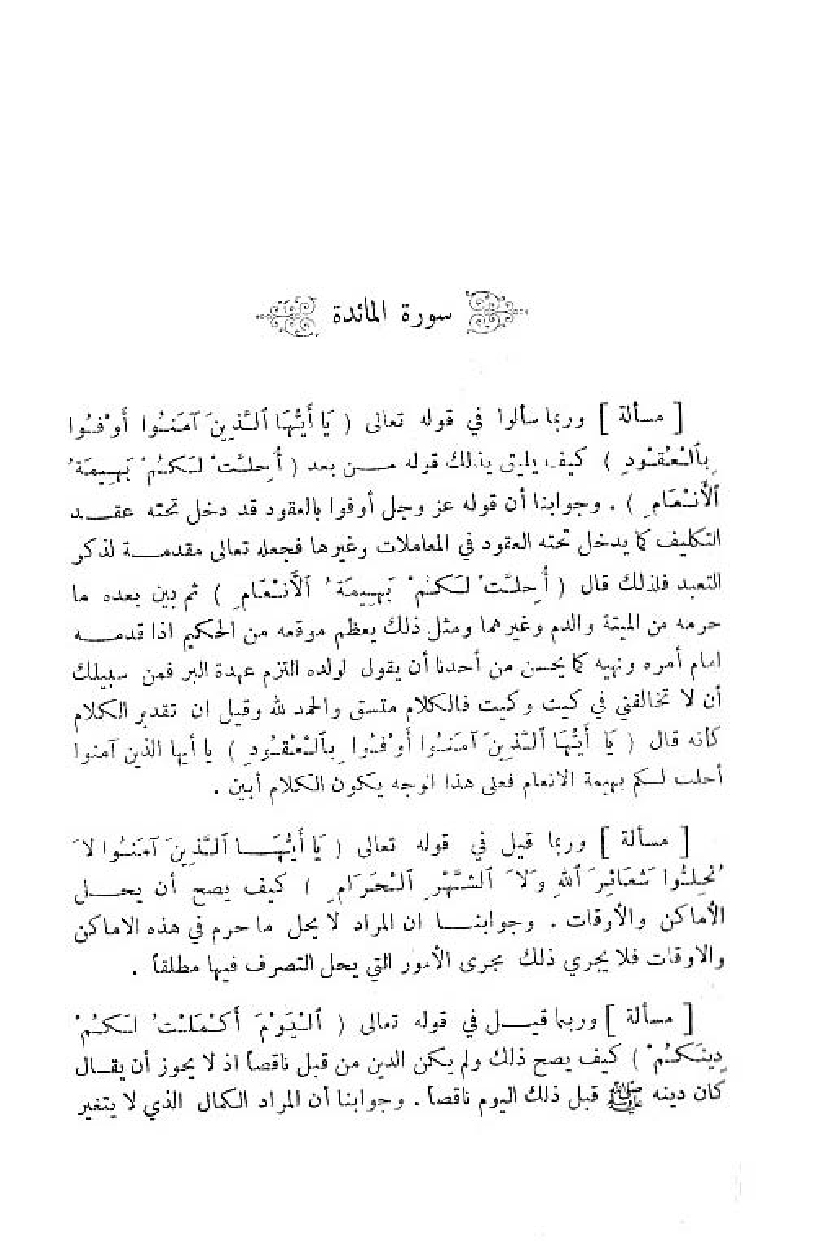 سورة المائدة
[ مسألة ] وربما سألوا في قوله تعالى ( يَا أَيُّهَا ٱلَّذِينَ آمَنُوا أَوْفُوا
بِٱلْعُقُودِ ) كيف يليق بذلك قوله مـن بعد ( أُحِلَّتْ لَكُمْ بَهِيمَةُ
ٱلْأَنْعَامِ ) . وجوابنا أن قوله عز وجل أوفوا بالعقود قد دخل تحته عقـد
التكليف كما يدخل تحته العقود في المعاملات وغيرها فجعله تعالى مقدمـة لذكر
التعبد فلذلك قال ( أُحِلَّتْ لَكُمْ بَهِيمَةُ ٱلْأَنْعَامِ ) ثم بين بعده ما
حرمه من الميتة والدم وغيرهما ومثل ذلك يعظم موقعه من الحكيم اذا قدمـه
امام أمره ونهيه كما يحسن من أحدنا أن يقول لولده التزم عهدة البر فمن سبيلك
أن لا تخالفني في كيت وكيت فالكلام متسق والحمد لله وقيل ان تقدير الكلام
كأنه قال ( يَا أَيُّهَا ٱلَّذِينَ آمَنُوا أَوْفُوا بِٱلْعُقُودِ ) يا أيها الذين آمنوا
أحلت لكم بهيمة الانعام فعلى هذا الوجه يكون الكلام أبين .
[ مسألة ] وربما قيل في قوله تعالى ( يَا أَيُّهَـا ٱلَّذِينَ آمَنُوا لَا
تُحِلُّوا شَعَائِرَ ٱللهِ وَلَا ٱلشَّهْرَ ٱلْحَرَامَ ) كيف يصح أن يحـل
الأماكن والأوقات . وجوابنـا ان المراد لا يحل ما حرم في هذه الاماكن
والاوقات فلا يجري ذلك مجرى الأمور التي يحل التصرف فيها مطلقاً .
[ مسألة ] وربما قيـل في قوله تعالى ( ٱلْيَوْمَ أَكْمَلْتُ لَكُمْ
دِينَكُمْ ) كيف يصح ذلك ولم يكن الدين من قبل ناقصاً اذ لا يجوز أن يقـال
كان دينه ﷺ قبل ذلك اليوم ناقصاً . وجوابنا أن المراد الكمال الذي لا يتغير